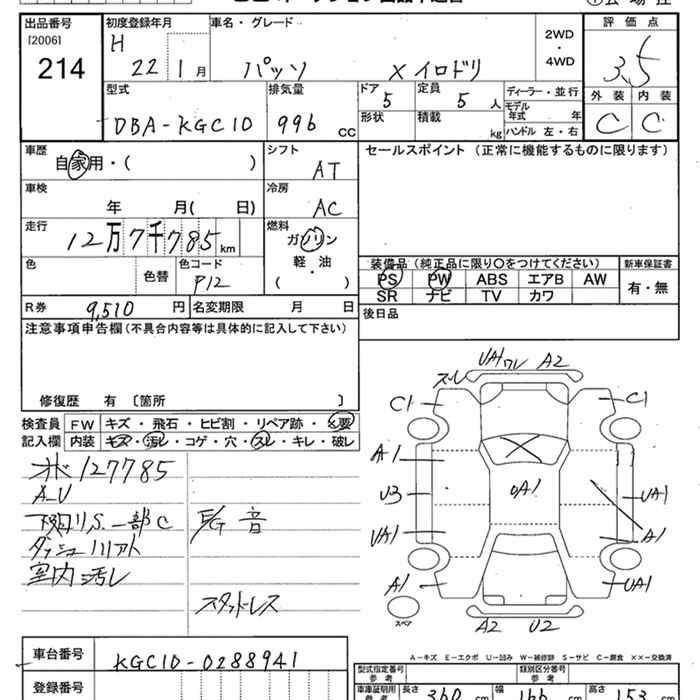 出品番号 初度登録年月 車名・グレード 2WD・4WD 評価点
[2006] H 3.5
214 22 1月 パッソ X イロドリ 外装 内装
型式 排気量 ドア 5 定員 5人 ディーラー・並行 C C
DBA-KGC10 996 cc 形状 積載 kg モデル年式 年 ハンドル 左・右
車歴 自家用・( ) シフト AT セールスポイント(正常に機能するものに限ります)
車検 年 月( 日) 冷房 AC
走行 12万7千785km 燃料 ガソリン
軽・油
( )
色 色替 色コード P12
装備品(純正品に限り〇をつけてください) 新車保証書
PS PW ABS エアB AW 有・無
SR ナビ TV カワ
R券 9,510 円 名変期限 月 日 後日品
注意事項申告欄(不具合内容等は具体的に記入して下さい)
修復歴 有〔箇所 〕
検査員 FW キズ・飛石・ヒビ割・リペア跡・×要
記入欄 内装 キズ・汚レ・コゲ・穴・スレ・キレ・破レ
127785
S.一部C 音
室内汚レ
スタッドレス
UA1 ワレ A2
スレ
C1 C1
A1
U3 UA1 UA1
UA1 A1
A1 UA1
スペア A2 U2
A-キズ E-エクボ U-凹み W-補修跡 S-サビ C-腐食 ××-交換済
車台番号 KGC10-0288941
登録番号
型式指定番号 参考 類別区分番号 参考
車庫証明用 参考 長さ 360 cm 幅 166 cm 高さ 153 cm